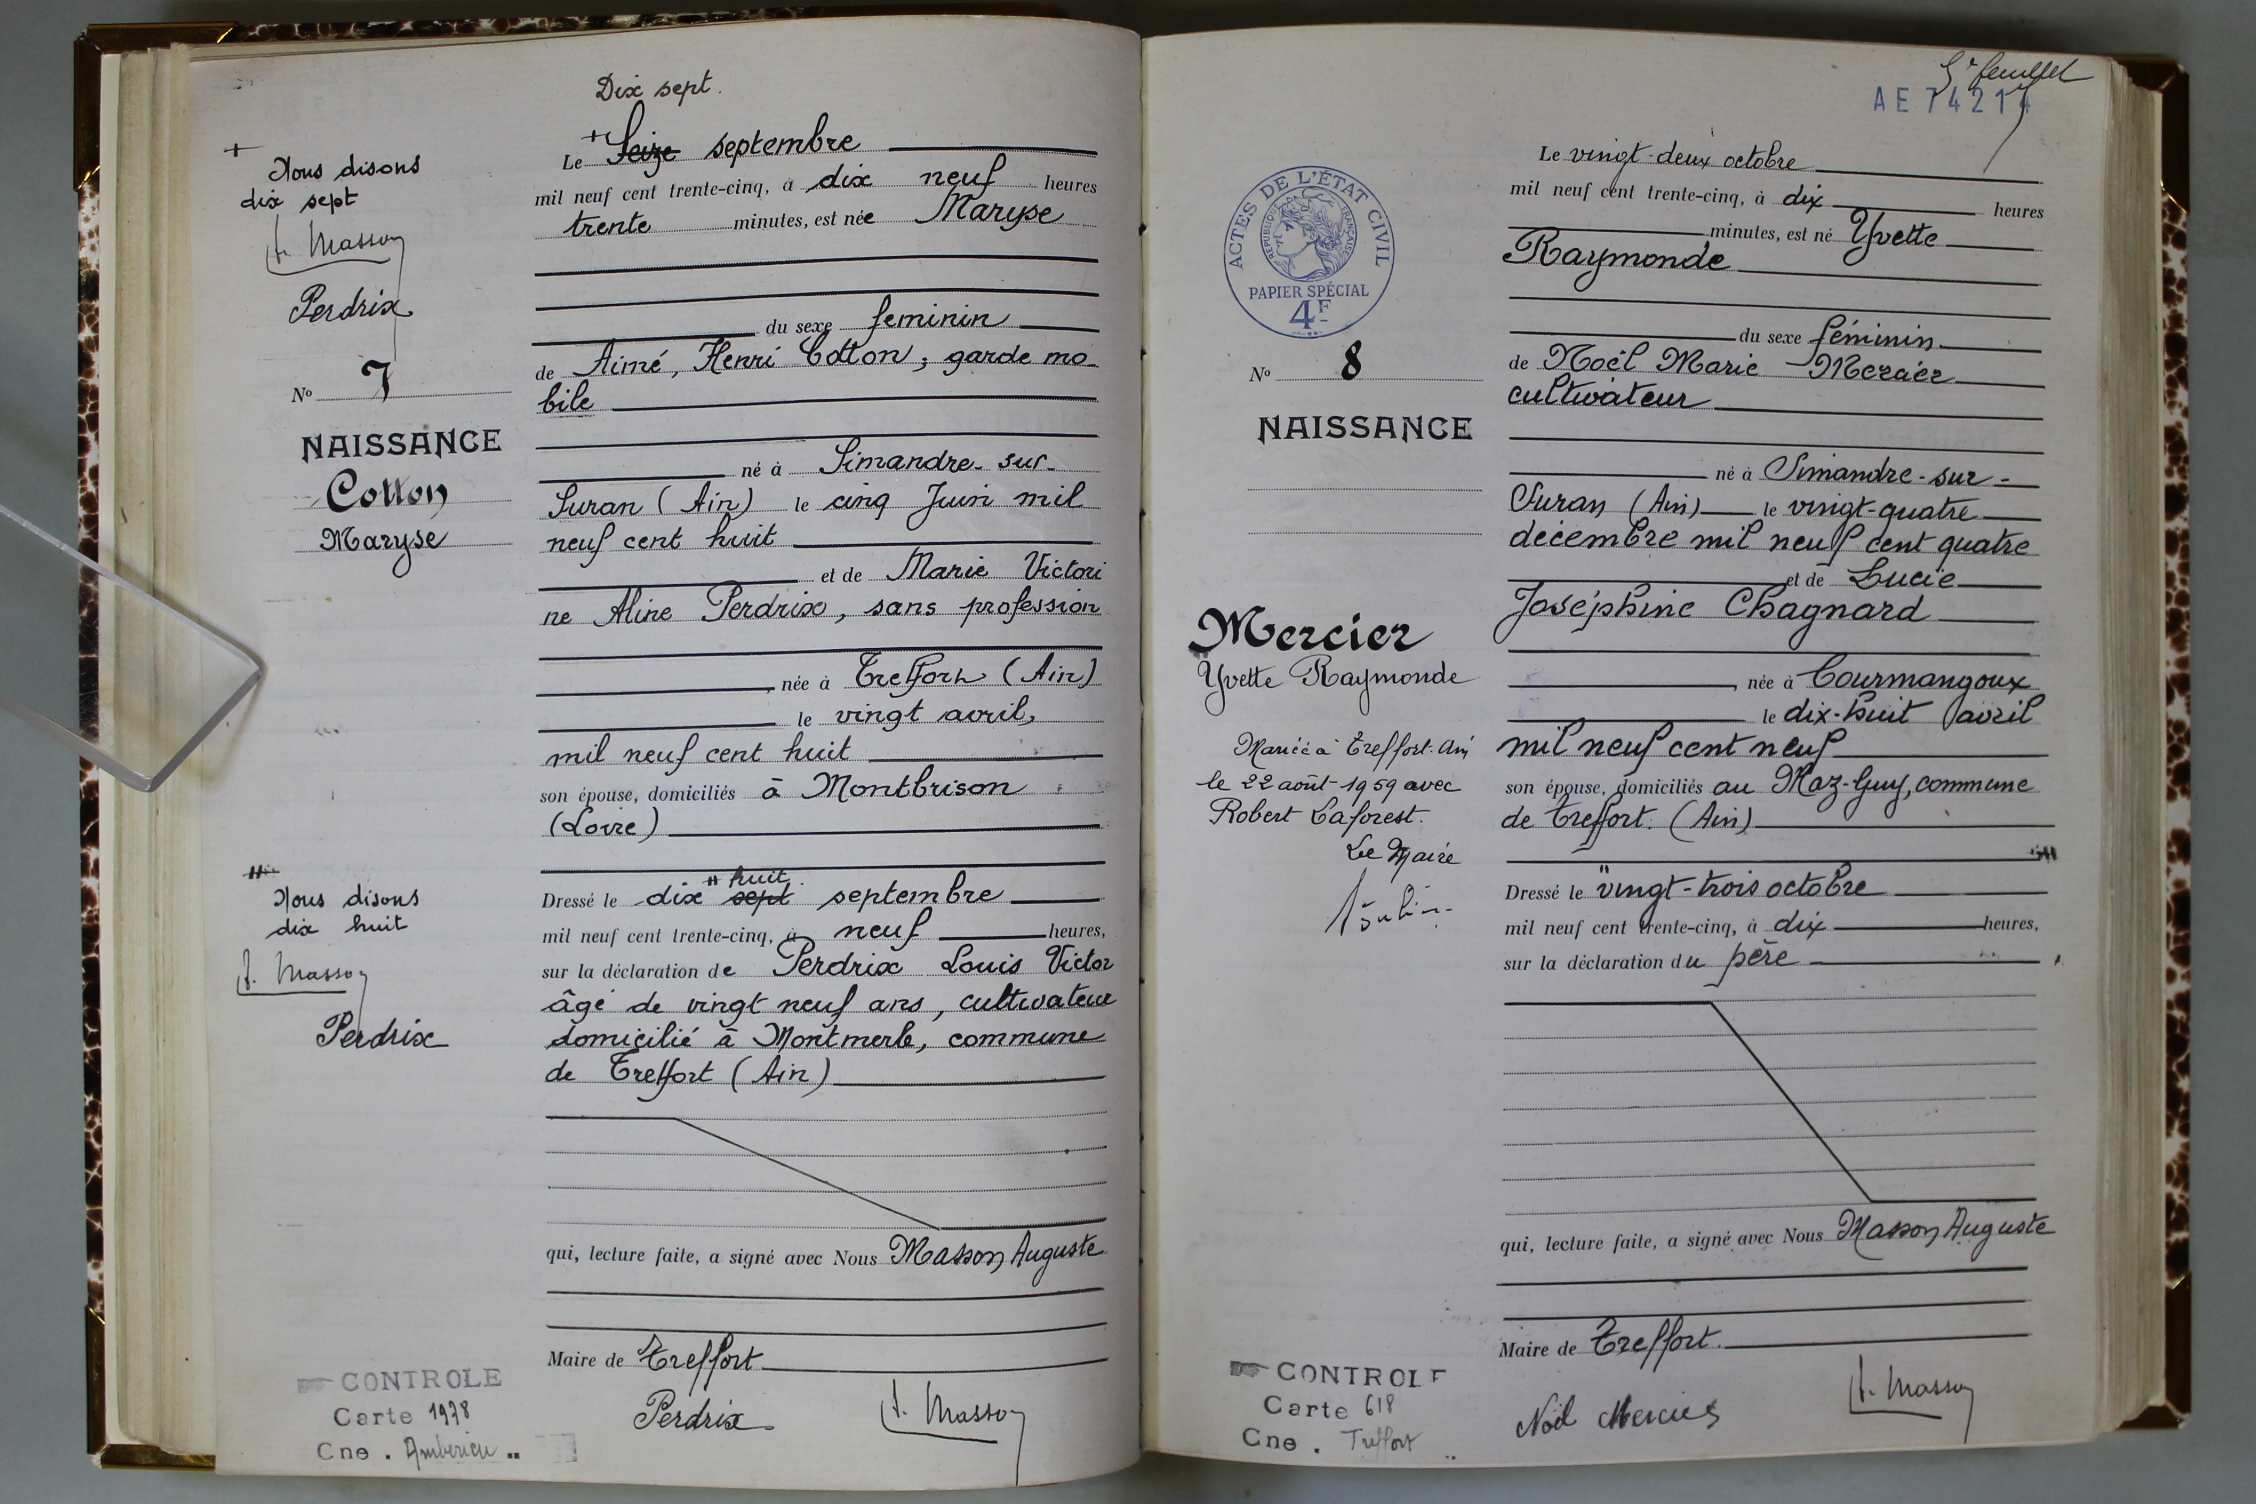 Dix sept.
+
Nous disons
dix sept
A. Masson
Perdrix
No 7
NAISSANCE
Cotton
Maryse
Nous disons
dix huit
A. Masson
Perdrix
CONTROLE
Carte 1978
Cne. Ambérieu
Le + Seize septembre
mil neuf cent trente-cinq, à dix neuf heures
trente minutes, est née Maryse
du sexe feminin
de Aimé, Henri Cotton, garde mo-
bile
né à Simandre-sur-
Suran (Ain) le cinq Juin mil
neuf cent huit
et de Marie Victori
ne Aline Perdrix, sans profession
, née à Treffort (Ain)
le vingt avril,
mil neuf cent huit
son épouse, domiciliés à Montbrison
(Loire)
huit
Dressé le dix " sept septembre
mil neuf cent trente-cinq, à neuf heures,
sur la déclaration de Perdrix Louis Victor
âgé de vingt neuf ans, cultivateur
domicilié à Montmerle, commune
de Treffort (Ain)
qui, lecture faite, a signé avec Nous Masson Auguste
Maire de Treffort
Perdrix A. Masson
5e feuillet
AE 74214
ACTES DE L'ÉTAT CIVIL
RÉPUBLIQUE FRANÇAISE
PAPIER SPÉCIAL
4F
No 8
NAISSANCE
Mercier
Yvette Raymonde
Mariée à Treffort-Ain
le 22 août 1959 avec
Robert Laforest.
Le Maire
CONTROLE
Carte 618
Cne. Treffort
Le vingt-deux octobre
mil neuf cent trente-cinq, à dix heures
minutes, est né Yvette
Raymonde
du sexe féminin
de Noël Marie Mercier
cultivateur
né à Simandre-sur-
Suran (Ain) le vingt-quatre
décembre mil neuf cent quatre
et de Lucie
Joséphine Chagnard
, née à Courmangoux
le dix-huit avril
mil neuf cent neuf
son épouse, domiciliés au Maz-Guy, commune
de Treffort. (Ain)
Dressé le vingt-trois octobre
mil neuf cent trente-cinq, à dix heures,
sur la déclaration du père
qui, lecture faite, a signé avec Nous Masson Auguste
Maire de Treffort.
Noël Mercier A. Masson